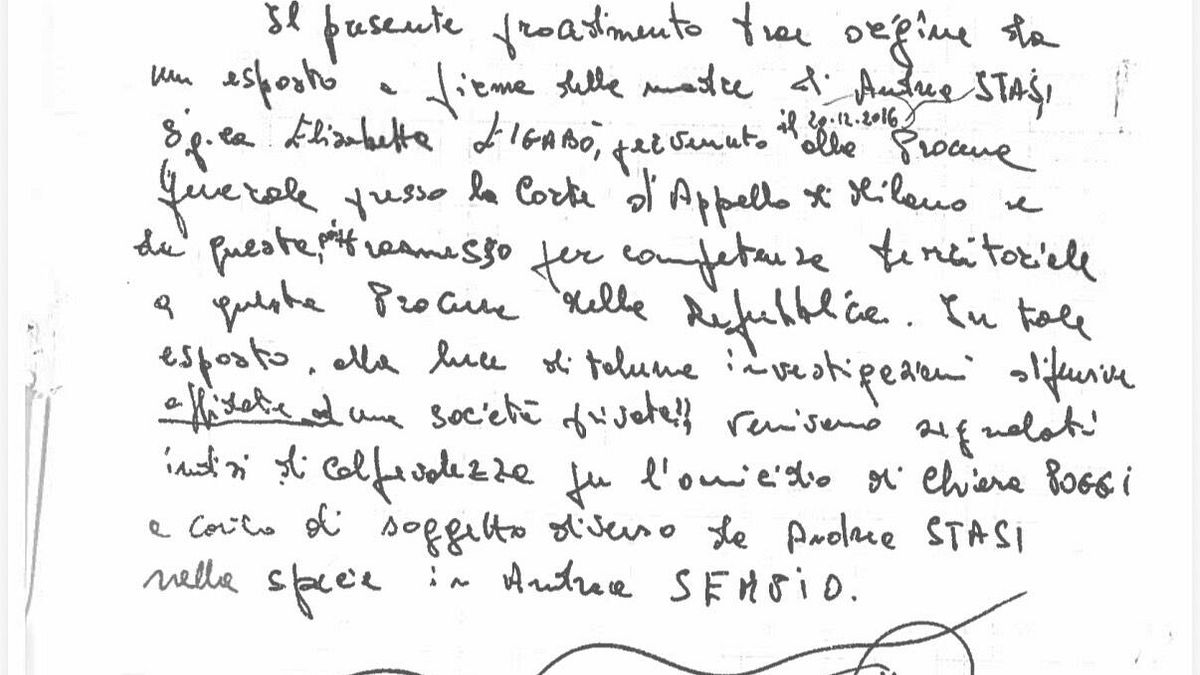 Il presente procedimento trae origine da
un esposto a firma della madre di Andrea STASI
Sig.ra Elisabetta LIGABÒ, pervenuto il 20.12.2016 alla Procura
Generale presso la Corte d'Appello di Milano e
da questa, poi trasmesso per competenza territoriale
a questa Procura della Repubblica. In tale
esposto, alla luce di talune investigazioni difensive
affidate ad una società privata, venivano segnalati
indizi di colpevolezza per l'omicidio di Chiara POGGI
a carico di soggetto diverso da Andrea STASI
nella specie in Andrea SEMPIO.